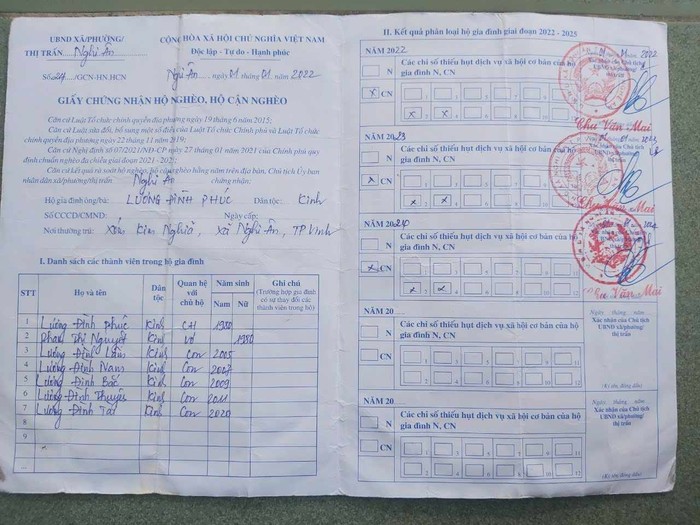 UBND XÃ/PHƯỜNG/
THỊ TRẤN Nghi Ân
Số: 24 /GCN-HN.HCN
CỘNG HÒA XÃ HỘI CHỦ NGHĨA VIỆT NAM
Độc lập - Tự do - Hạnh phúc
Nghi Ân, ngày 01 tháng 01 năm 2022
GIẤY CHỨNG NHẬN HỘ NGHÈO, HỘ CẬN NGHÈO
Căn cứ Luật Tổ chức chính quyền địa phương ngày 19 tháng 6 năm 2015;
Căn cứ Luật sửa đổi, bổ sung một số điều của Luật Tổ chức Chính phủ và Luật Tổ chức
chính quyền địa phương ngày 22 tháng 11 năm 2019;
Căn cứ Nghị định số 07/2021/NĐ-CP ngày 27 tháng 01 năm 2021 của Chính phủ quy
định chuẩn nghèo đa chiều giai đoạn 2021 - 2025;
Căn cứ kết quả rà soát hộ nghèo, hộ cận nghèo hằng năm trên địa bàn, Chủ tịch Ủy ban
nhân dân xã/phường/thị trấn Nghi Ân chứng nhận:
Hộ gia đình ông/bà: LƯƠNG ĐÌNH PHÚC Dân tộc: Kinh
Số CCCD/CMND: Ngày cấp:
Nơi thường trú: Xóm Kim Nghĩa, xã Nghi Ân, TP Vinh
I. Danh sách các thành viên trong hộ gia đình
STT Họ và tên Dân tộc Quan hệ với chủ hộ Năm sinh Nam Nữ Ghi chú (Trường hợp gia đình có sự thay đổi các thành viên trong hộ)
1 Lương Đình Phúc Kinh CH 1980
2 Phan Thị Nguyệt Kinh Vợ 1980
3 Lương Đình Kinh Con 2005
4 Lương Đình Nam Kinh Con 2007
5 Lương Đình Bắc Kinh Con 2009
6 Lương Đình Kinh Con 2011
7 Lương Đình Tài Kinh Con 2020
8
9
...
II. Kết quả phân loại hộ gia đình giai đoạn 2022 - 2025
NĂM 2022
N
x CN
Các chỉ số thiếu hụt dịch vụ xã hội cơ bản của hộ
gia đình N, CN
x x
Xác nhận của Chủ tịch
UBND xã/phường/
thị trấn
Chu Văn Mai
NĂM 2023
N
x CN
Các chỉ số thiếu hụt dịch vụ xã hội cơ bản của hộ
gia đình N, CN
x x
Chu Văn Mai
NĂM 2024
N
x CN
Các chỉ số thiếu hụt dịch vụ xã hội cơ bản của hộ
gia đình N, CN
x x
Chu Văn Mai
NĂM 20
N
CN
Các chỉ số thiếu hụt dịch vụ xã hội cơ bản của hộ
gia đình N, CN
1 3 5 7 9 11
2 4 6 8 10 12
Ngày tháng năm
Xác nhận của Chủ tịch
UBND xã/phường/
thị trấn
(Ký tên, đóng dấu)
NĂM 20
N
CN
Các chỉ số thiếu hụt dịch vụ xã hội cơ bản của hộ
gia đình N, CN
1 3 5 7 9 11
2 4 6 8 10 12
Ngày tháng năm
Xác nhận của Chủ tịch
UBND xã/phường/
thị trấn
(Ký tên, đóng dấu)